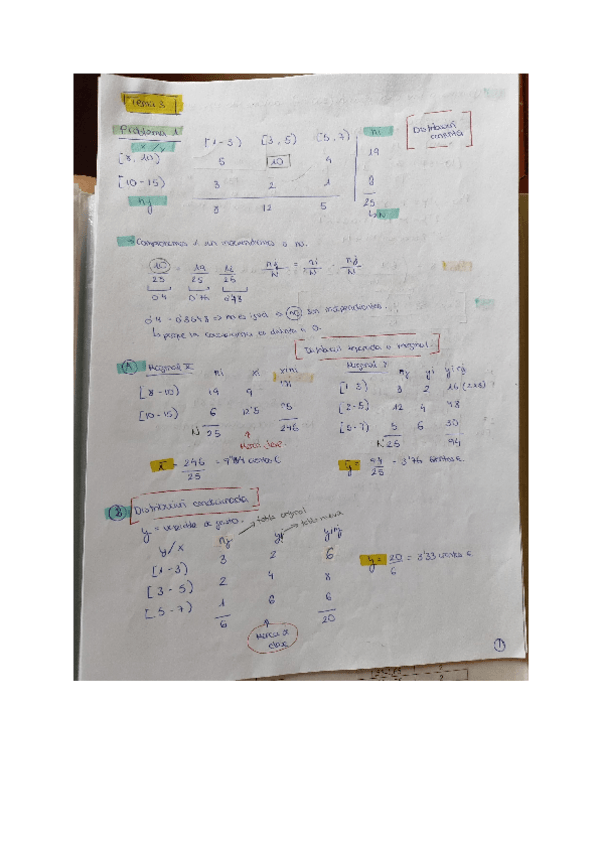 Tema 3
Problema 1
x / y [1-3) [3, 5) [5, 7) ni
Distribución conjunta
[8, 10) 5 10 4 19
[10-15) 3 2 1 6
nj 8 12 5 25
N
→ Comprobamos si son independientes o no.
10/25 19/25 12/25 nij/N = ni/N · nj/N
0'4 0'76 0'48
0'4 - 0'3648 → no es igual → no son independientes.
↳ porque la covarianza es distinta a 0.
Distribución marginal
A Marginal X ni xi xini
[8-10) 19 9 171
[10-15) 6 12'5 75
N 25 246
Marca clase
x̄ = 246/25 = 9'84 cientos €
Marginal Y nj yj yjnj
[1-3) 8 2 16 (2x8)
[3-5) 12 4 48
[5-7) 5 6 30
N 25 94
ȳ = 94/25 = 3'76 cientos €.
B Distribución condicionada
y = variable de gasto.
→ tabla original
→ tabla nueva
y/x nj yj yjnj
[1-3) 3 2 6
[3-5) 2 4 8
[5-7) 1 6 6
6 20
Marca de clase
ȳ = 20/6 = 3'33 cientos €.
1